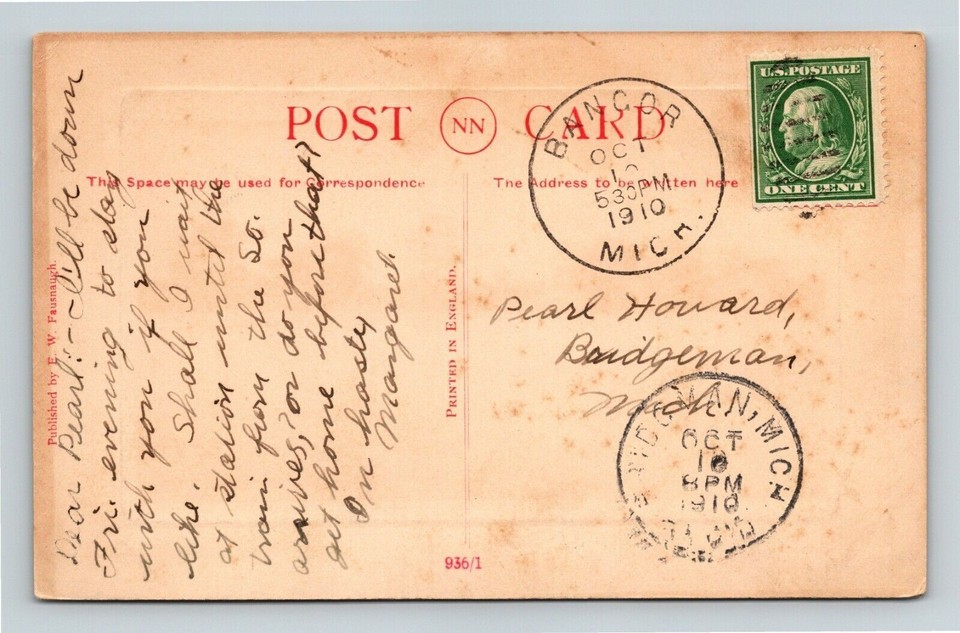 POST NN CARD
This Space may be used for Correspondence
The Address to be written here
U.S. POSTAGE
ONE CENT
BANGOR
OCT
530PM
1910
MICH.
Dear Pearl:- I'll be down
Fri. evening to stay
with you if you
like. Shall I wait
at station until the
train from the So.
arrives, or do you
get home before that?
In haste,
Margaret.
Pearl Howard,
Bridgeman,
Mich.
MAN, MICH
OCT
8PM
1910
Published by E. W. Fausnaugh.
PRINTED IN ENGLAND.
936/1